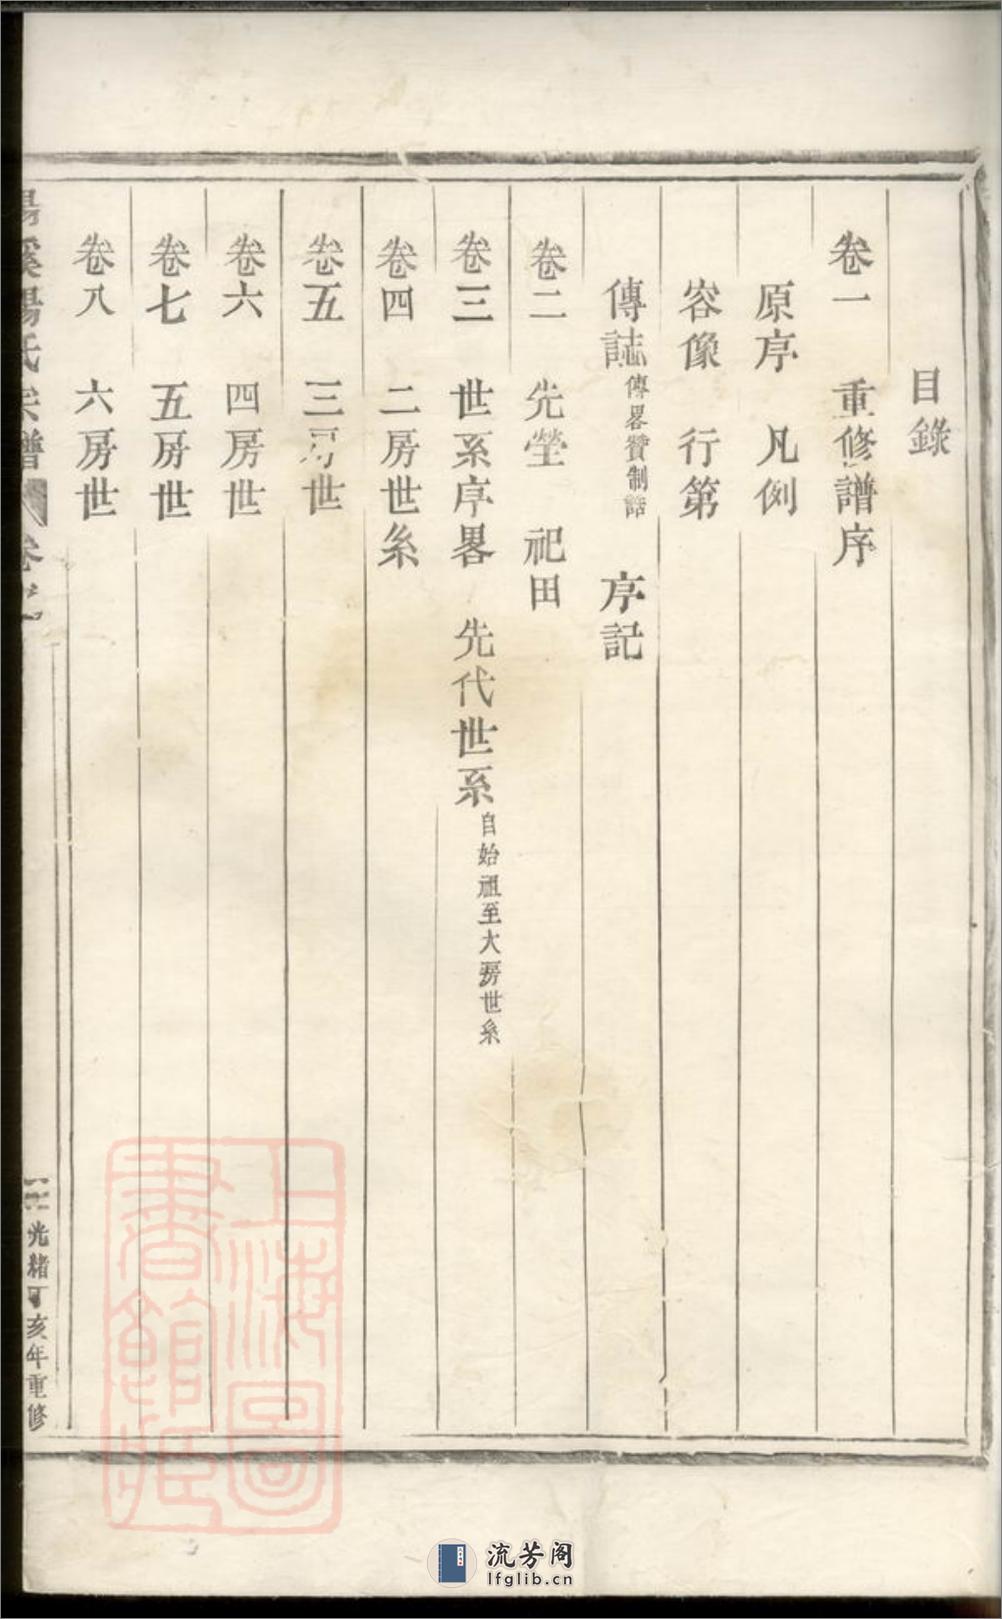 目錄
卷一 重修譜序
原序 凡例
容像 行第
傳誌 傳畧贊制誥 序記
卷二 先塋 祀田
卷三 世系序畧 先代世系 自始祖至大房世系
卷四 二房世系
卷五 三房世
卷六 四房世
卷七 五房世
卷八 六房世
溪湯氏宗譜 卷之
光緒丁亥年重修
上海圖書館藏
流芳阁
lfglib.cn